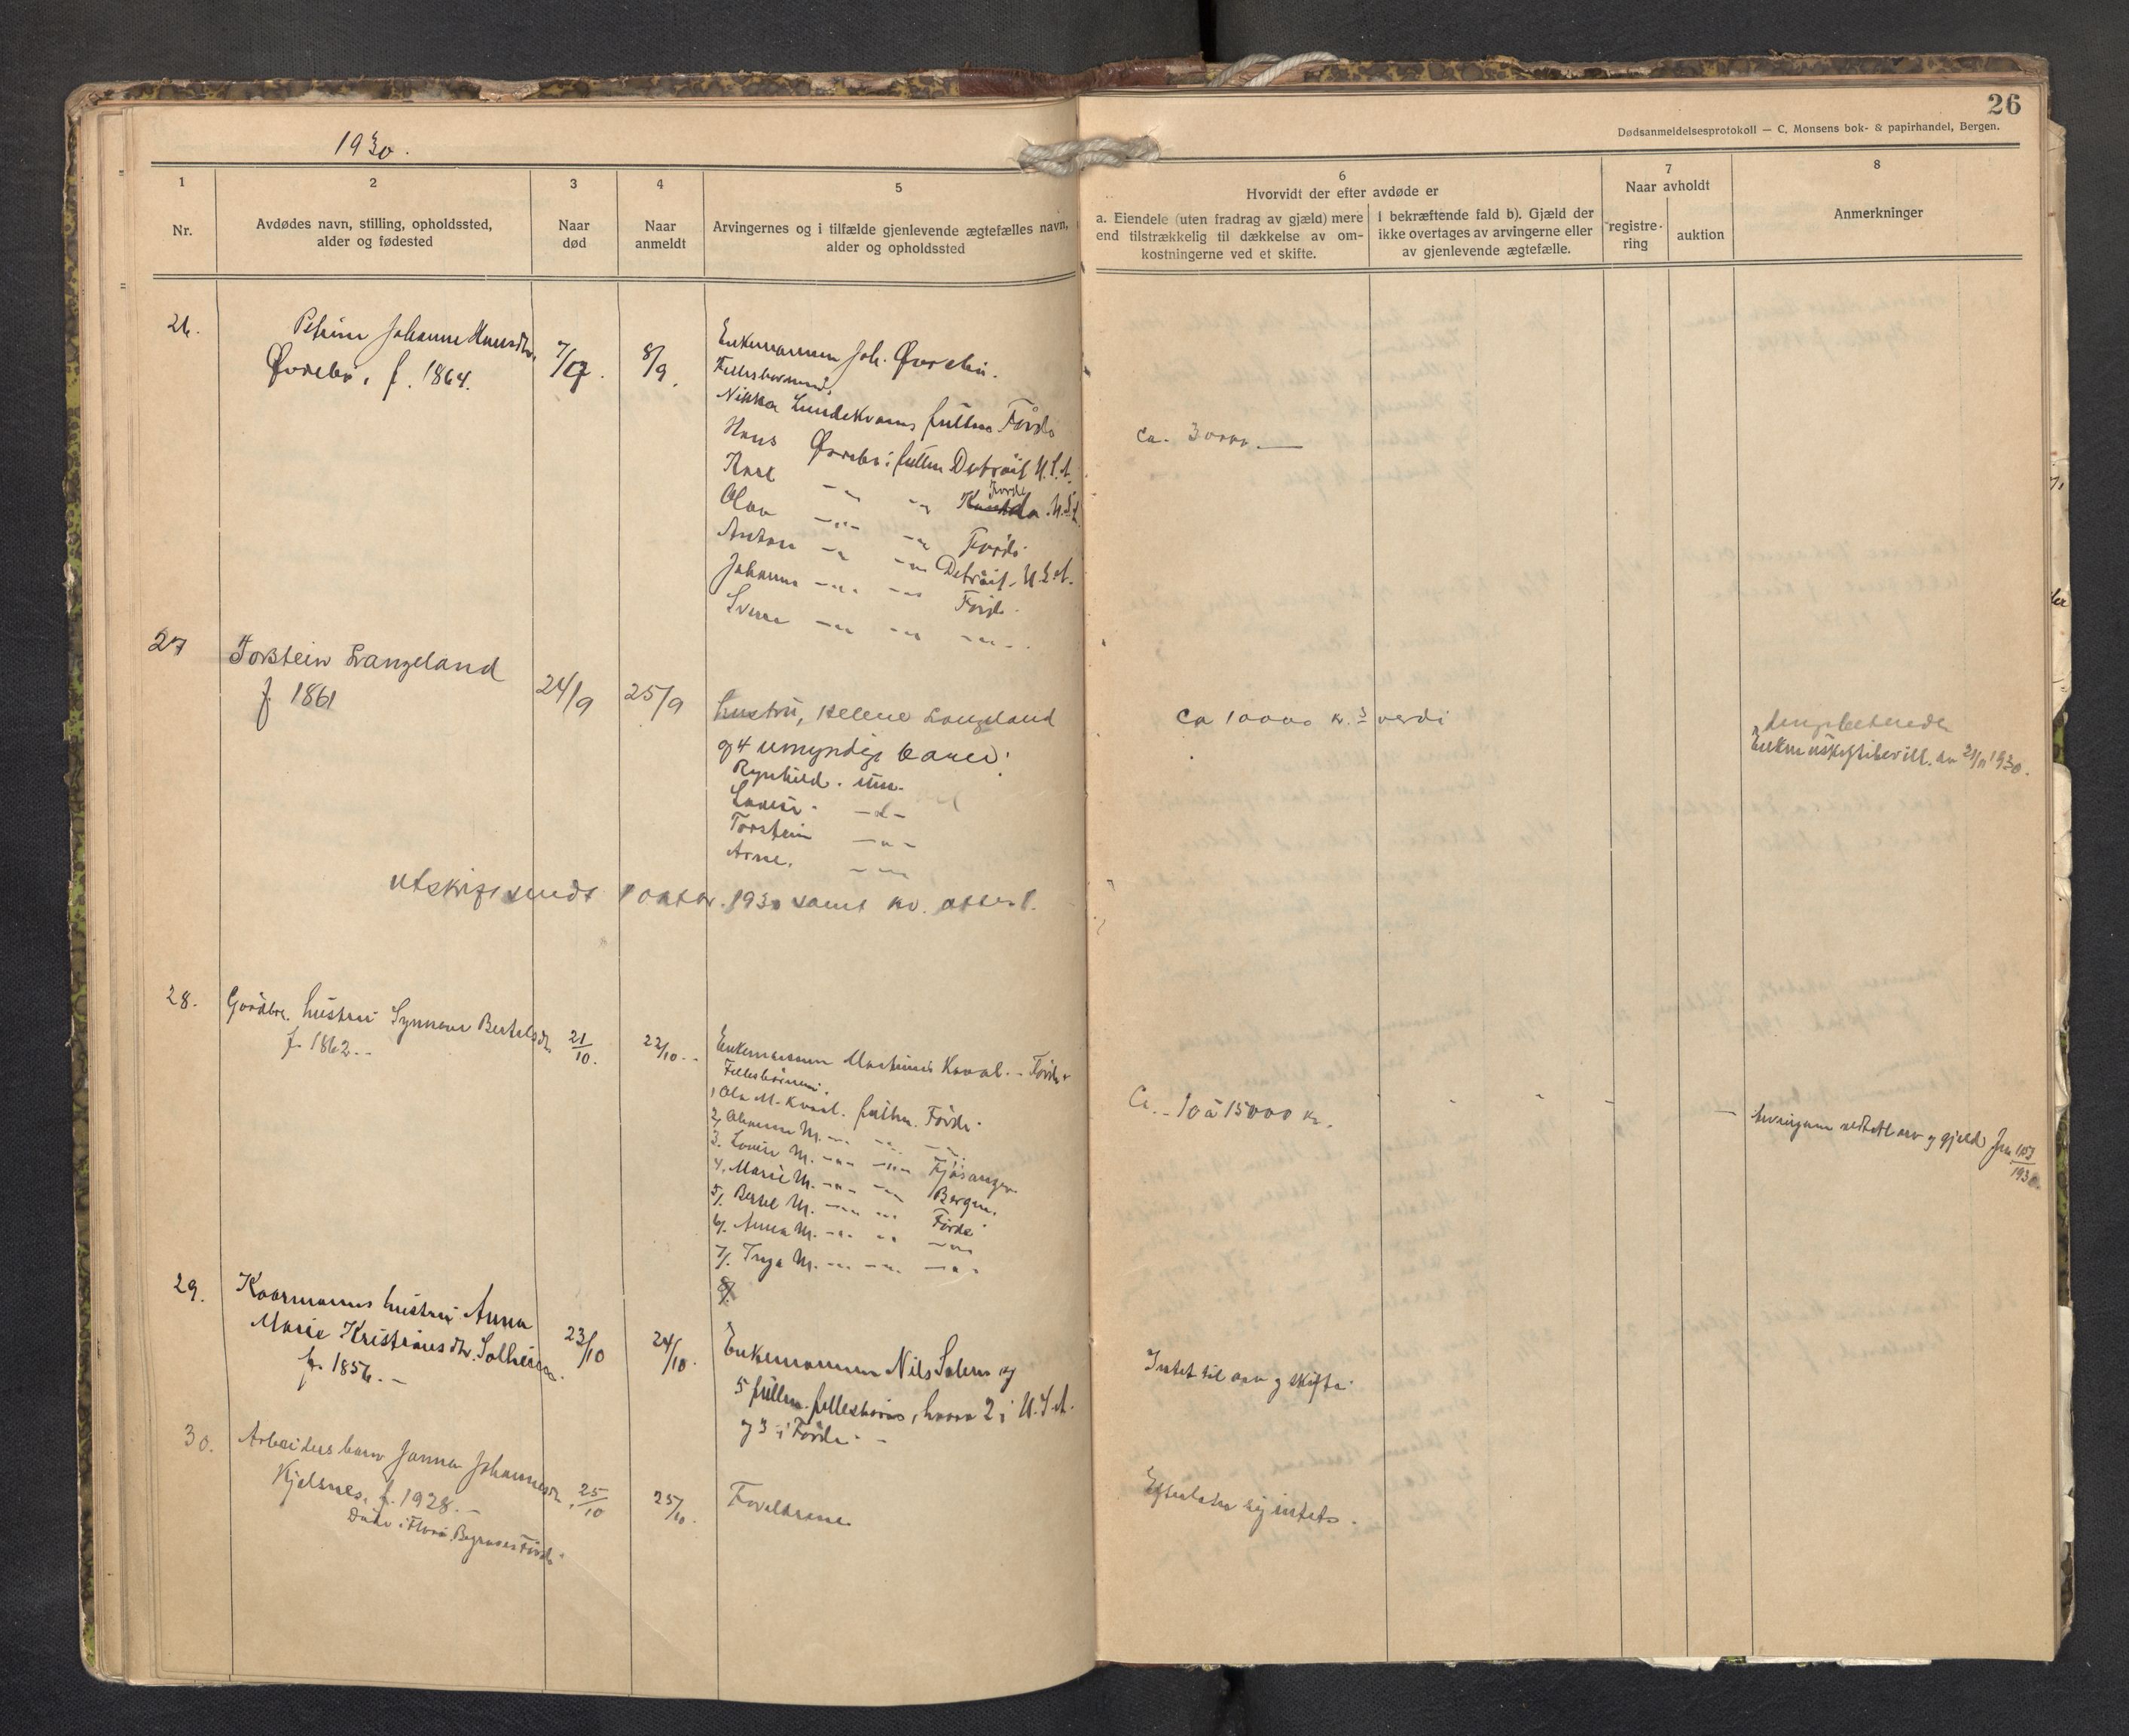 26
Dødsanmeldelsesprotokoll — C. Monsens bok- & papirhandel, Bergen.
1930.
1
Nr.
2
Avdødes navn, stilling, opholdssted,
alder og fødested
3
Naar
død
4
Naar
anmeldt
5
Arvingernes og i tilfælde gjenlevende ægtefælles navn,
alder og opholdssted
6
Hvorvidt der efter avdøde er
a. Eiendele (uten fradrag av gjæld) mere
end tilstrækkelig til dækkelse av om-
kostningerne ved et skifte.
I bekræftende fald b). Gjæld der
ikke overtages av arvingerne eller
av gjenlevende ægtefælle.
7
Naar avholdt
registre-
ring
auktion
8
Anmerkninger
26.
Petrine Johanne Hansdtr.
Øvrebø, f. 1864.
7/9.
8/9.
Enkemannen Joh. Øvrebø.
Fellesbarn
Nikka Lundekvam fullm. Førde
Hans Øvrebø: fullm Detroit U.S.A.
— " — — " — U.S.A.
Olav — " — — " — Førde
Anton — " — — " — Detroit U.S.A.
Johanna — " — — " — Førde.
Sverre — " — — " — — " —
ca. 30000.—
27
Torstein Langeland
f 1861
24/9
25/9
hustru, Helene Langeland
og 4 umyndige barn:
Ragnhild. um.
Lovise. — " —
Torstein — " —
Arne. — " —
Utskrift sendt 1 oktbr. 1930 samt attest.
ca 10000 kr.s verdi
Enkens uskiftebevill. av 21/11 1930.
28.
Gårdbr. hustru Synneva Bertelsdtr.
f. 1862.—
21/10.
22/10.—
Enkemannen Martinus Kvaal.— Førde
Fellesbarn:
1, Ola M. Kvaal. fullm. Førde.
2, M. — " — — " — — " —
3. Lovise M. — " — — " — Fjøsanger
4. Marie M. — " — — " — Bergen.
5/. Bertel M. — " — — " — Førde
6/. Anna M. — " — — " — — " —
7/. Inga M. — " — — " — — " —
8/.
Ca. 10 à 15000 kr.
arv og gjeld
1930.
29.
Kaarmanns hustru Anna
Marie Kristiansdtr. Solheim
f. 1856.—
23/10
24/10.
Enkemannen Nils Solem og
5 fullm. fellesbarn, hvorav 2 i U.S.A.
og 3 i Førde.—
Intet til arv og skifte.
30.
Arbeiders barn Janna Johannesdtr.
Kjelsnes, f. 1928.—
Døde i Florø. Begraves Førde.
25/10
25/10.
Foreldrene
Efterlater sig intet.